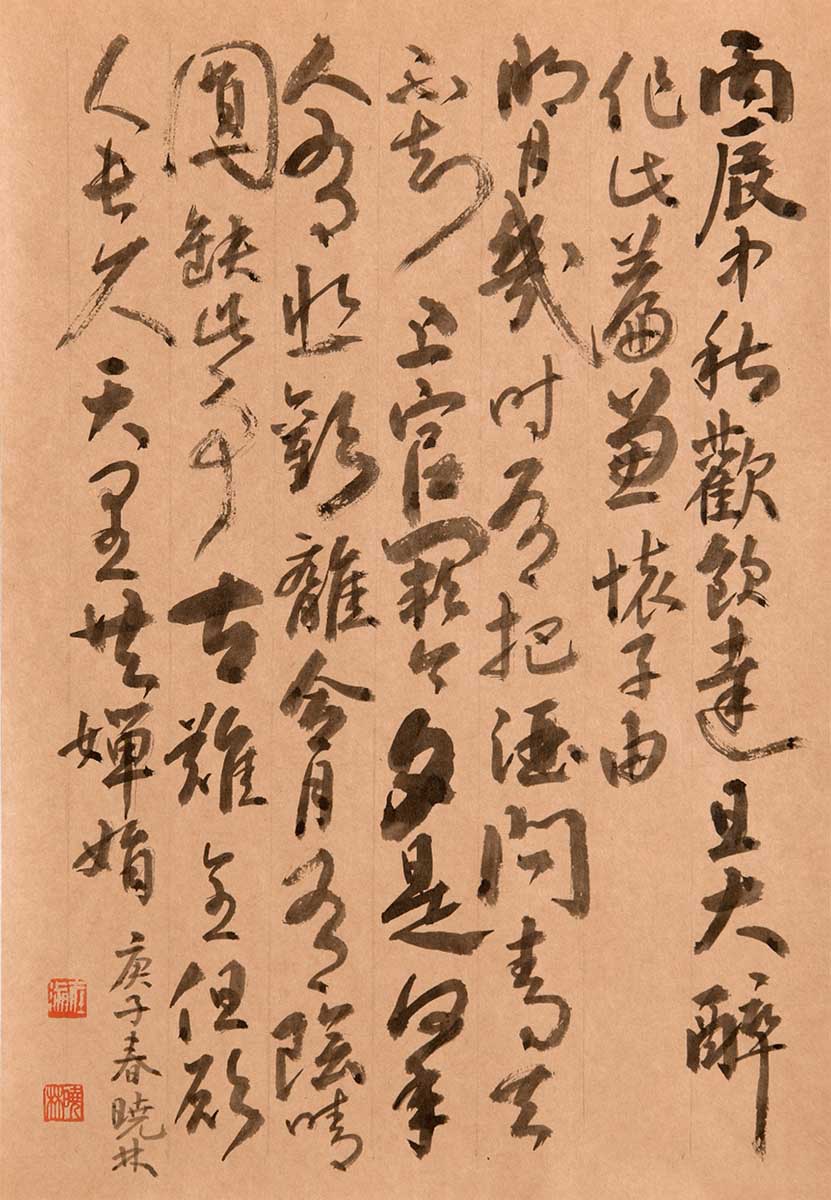 丙辰中秋歡飲達旦大醉
作此篇兼懷子由
明月幾时有把酒問青天
不知上宮闕今夕是何年
人有悲歡離合月有陰晴
圓缺此事古難全但願
人長久天里共嬋娟
庚子春暁林